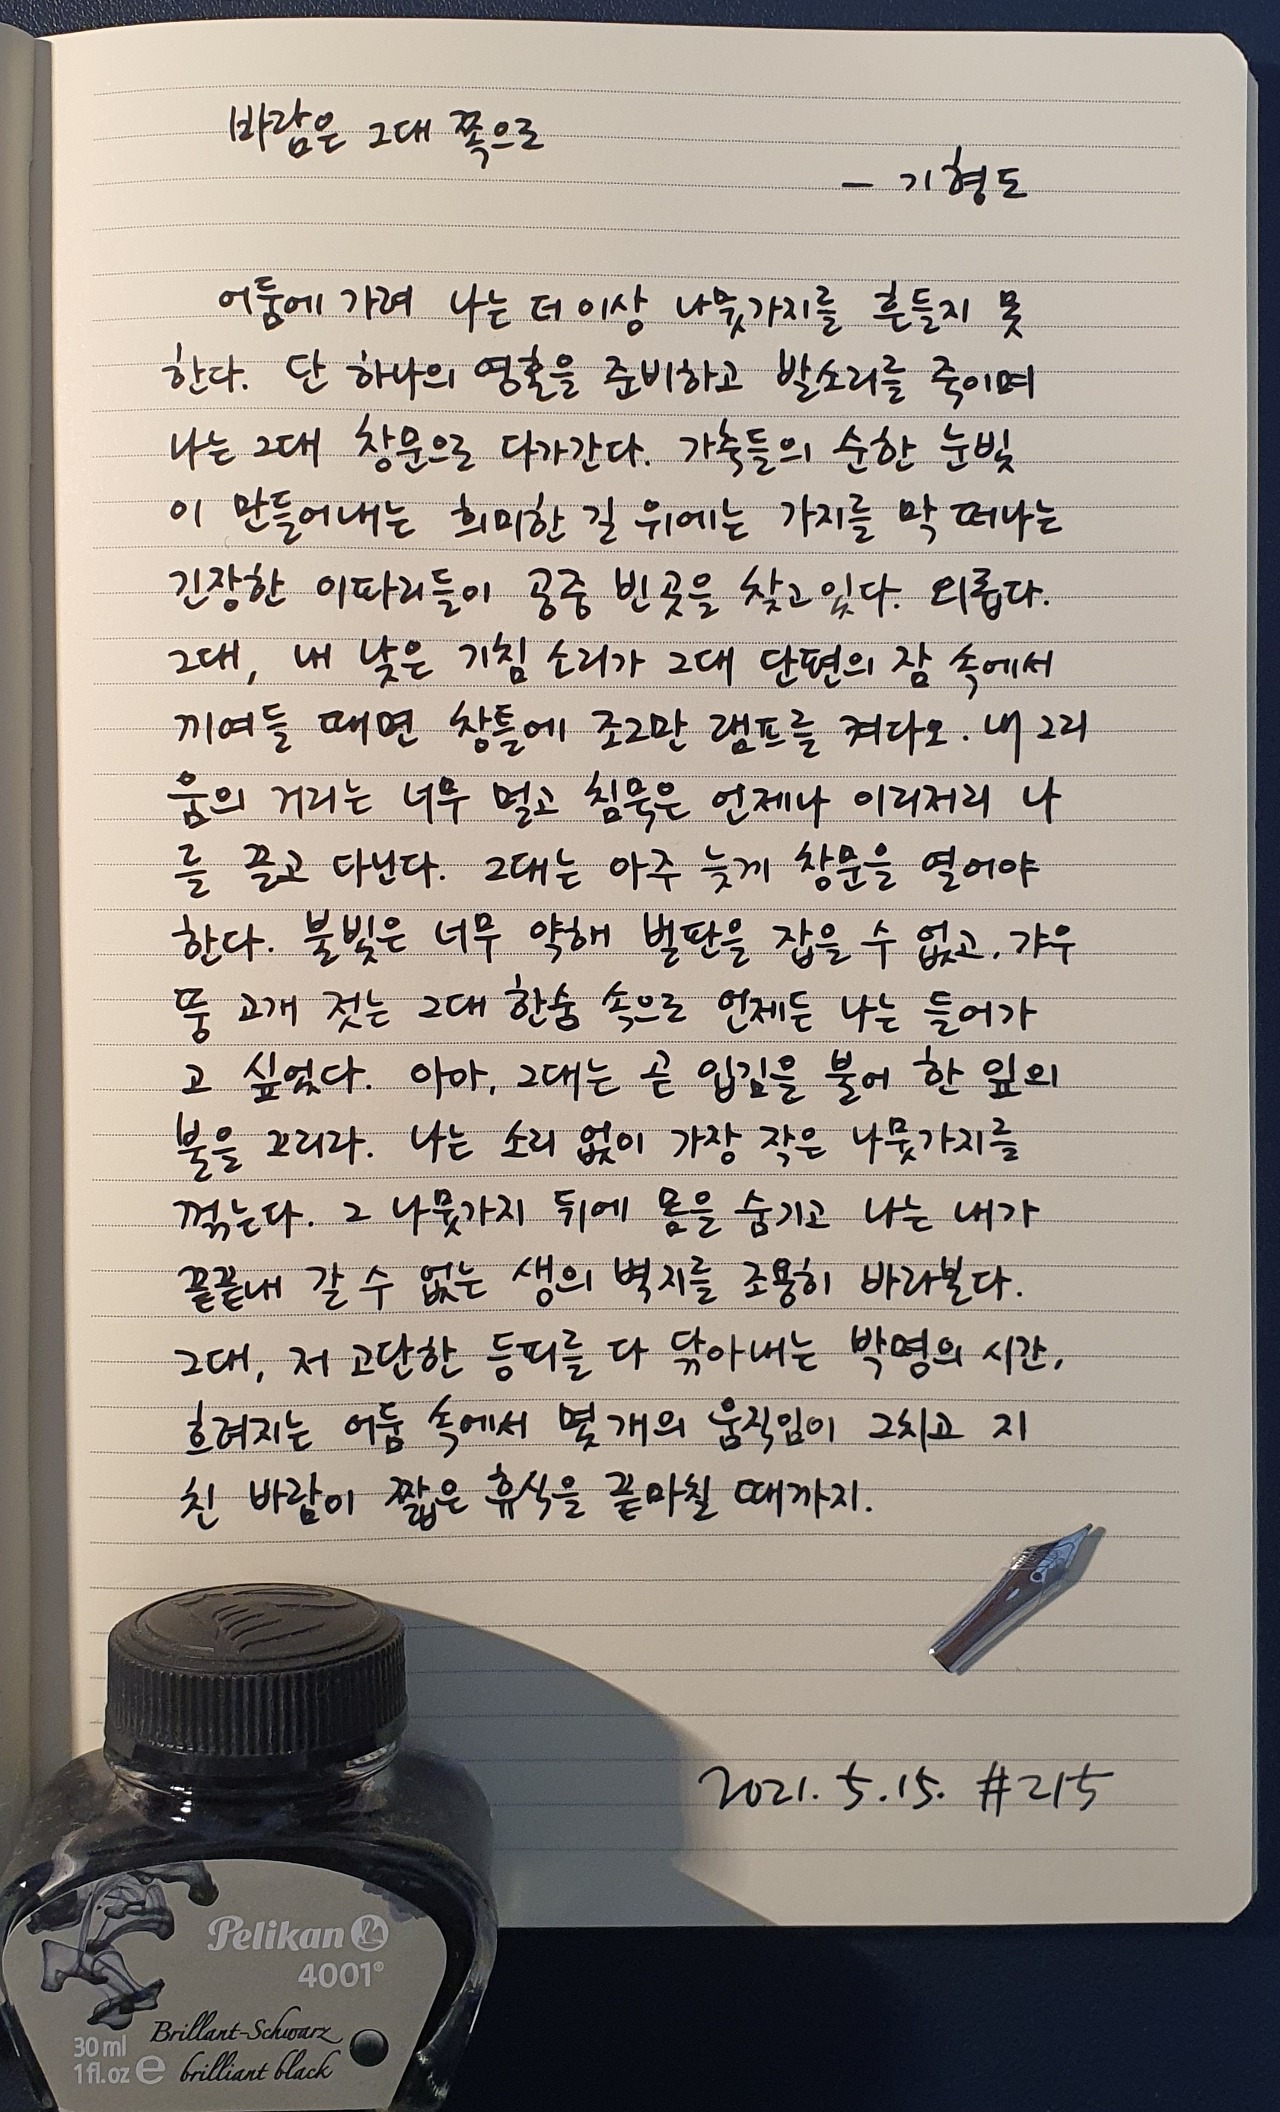 바람은 그대 쪽으로
- 기형도
어둠에 가려 나는 더 이상 나뭇가지를 흔들지 못
한다. 단 하나의 영혼을 준비하고 발소리를 죽이며
나는 그대 창문으로 다가간다. 가축들의 순한 눈빛
이 만들어내는 희미한 길 위에는 가지를 막 떠나는
긴장한 이파리들이 공중 빈곳을 찾고있다. 외롭다.
그대, 내 낮은 기침 소리가 그대 단편의 잠 속에서
끼여들 때면 창틀에 조그만 램프를 켜다오. 내 그리
움의 거리는 너무 멀고 침묵은 언제나 이리저리 나
를 끌고 다닌다. 그대는 아주 늦게 창문을 열어야
한다. 불빛은 너무 약해 벌판을 잡을 수 없고, 갸우
뚱 고개 젓는 그대 한숨 속으로 언제든 나는 들어가
고 싶었다. 아아, 그대는 곧 입김을 불어 한 잎의
불을 끄리라. 나는 소리 없이 가장 작은 나뭇가지를
꺾는다. 그 나뭇가지 뒤에 몸을 숨기고 나는 내가
끝끝내 갈 수 없는 생의 벽지를 조용히 바라본다.
그대, 저 고단한 등피를 다 닦아내는 박명의 시간,
흐려지는 어둠 속에서 몇 개의 움직임이 그치고 지
친 바람이 짧은 휴식을 끝마칠 때까지.
2021. 5. 15. #215
Pelikan
4001®
Brillant-Schwarz
30 ml
1 fl.oz e brilliant black